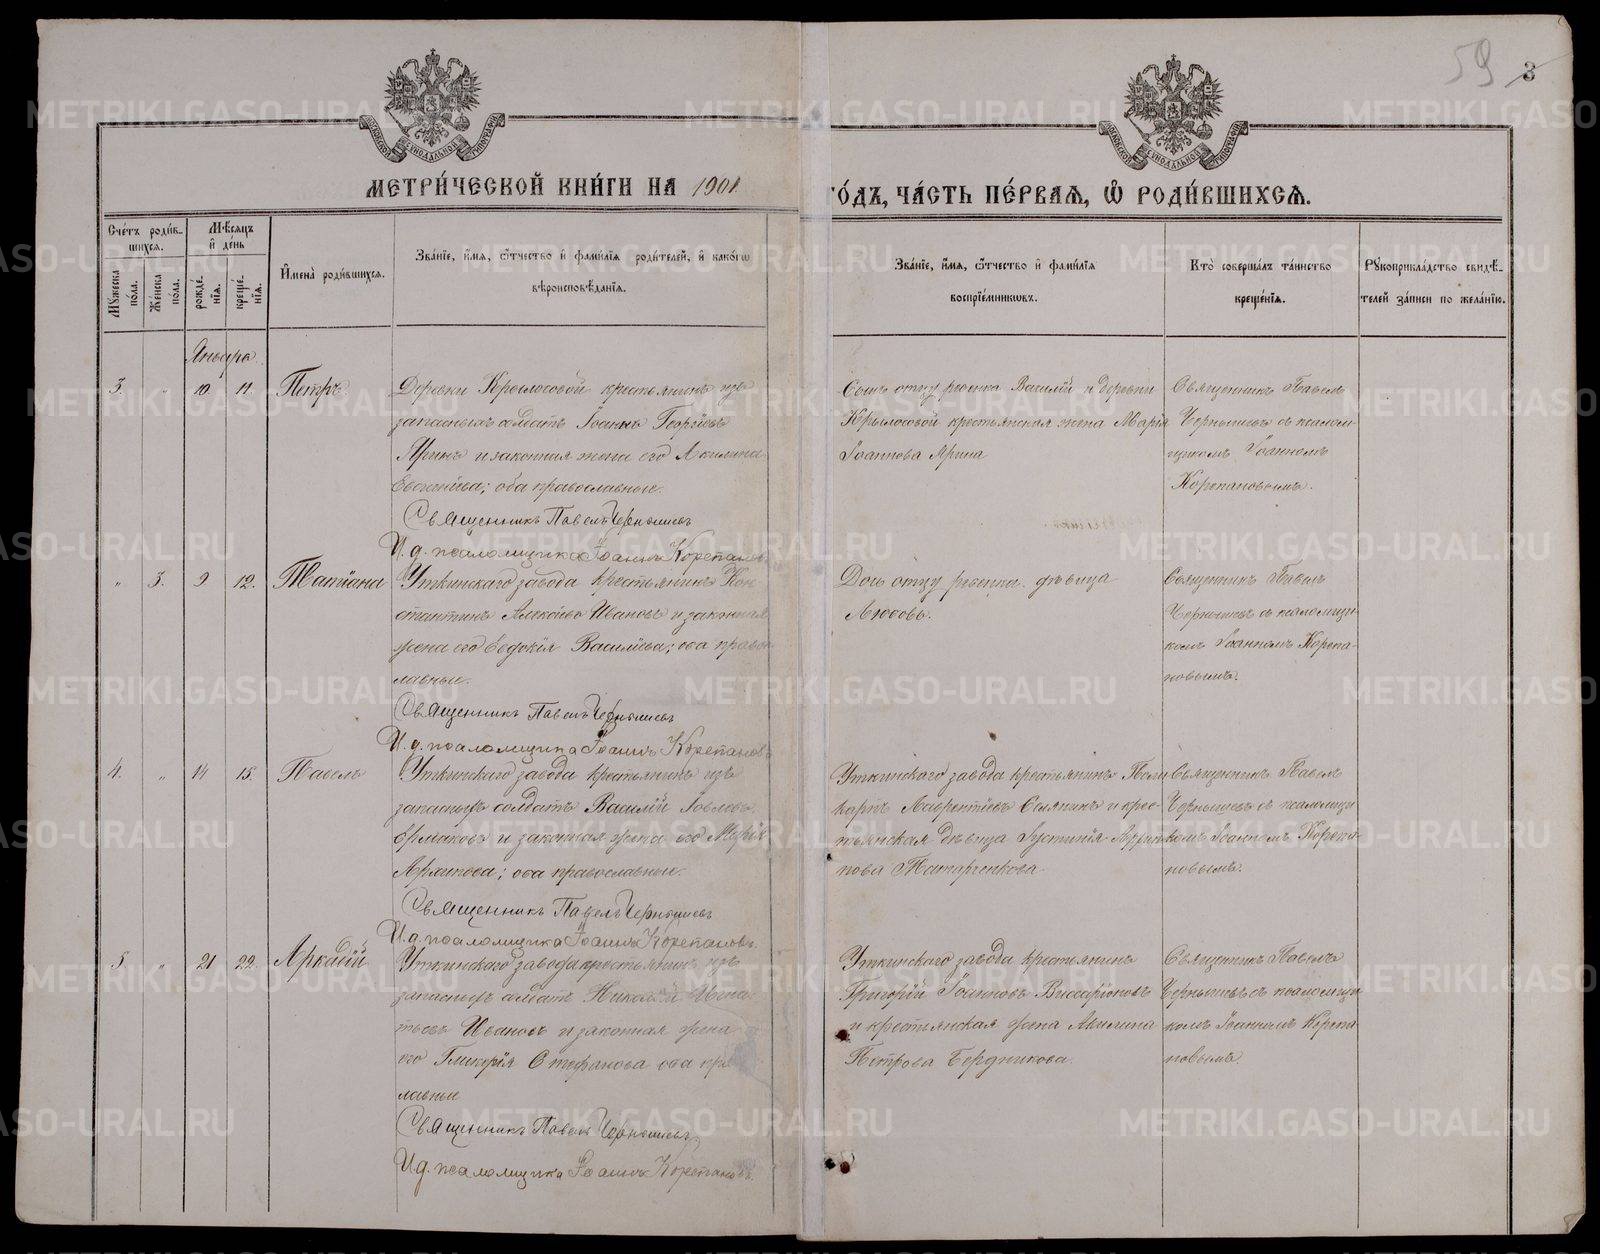 59 3
МЕТРИ́ЧЕСКОЙ КНИ́ГИ НА 1901 ГО́ДЪ, ЧА́СТЬ ПЕ́РВАЯ, Ѡ҆ РОДИ́ВШИХСЯ.
Сче́тъ роди́в-
шихся.
Мꙋ́жеска по́ла.
Же́нска по́ла.
Мѣ́сяцъ и҆ де́нь
рожде́-
нїя.
креще́-
нїя.
И҆мена̀ роди́вшихся.
Зва́нїе, и҆́мя, ѻ҆́тчество и҆ фами́лїя роди́телей, и҆ како́гѡ
вѣроисповѣ́данїя.
Зва́нїе, и҆́мя, ѻ҆́тчество и҆ фами́лїя
воспрїе́мникѡвъ.
Кто̀ соверша́лъ та́инство
креще́нїя.
Рꙋкоприкла́дство свидѣ́-
телей за́писи по жела́нїю.
Января
3. " 10. 11. Петръ.
Деревни Крылосовой крестьянинъ изъ
запасныхъ солдатъ Іоаннъ Георгіевъ
Яринъ и законная жена его Акилина
Евгеніева; оба православные.
Священникъ Павелъ Чернышевъ
И. д. псаломщика Іоаннъ Корепановъ
Сынъ отцу ребенка Василій и деревни
Крылосовой крестьянская жена Марія
Іоаннова Ярина
Священникъ Павелъ
Чернышевъ съ псалом-
щикомъ Іоанномъ
Корепановымъ.
" 3. 9 12. Татіана
Уткинскаго завода крестьянинъ Кон-
стантинъ Алексіевъ Ивановъ и законная
жена его Евдокія Васильева; оба право-
славные.
Священникъ Павелъ Чернышевъ
И. д. псаломщика Іоаннъ Корепановъ
Дочь отцу ребенка девица
Любовь.
Священникъ Павелъ
Чернышевъ съ псаломщи-
комъ Іоанномъ Корепа-
новымъ.
4. " 14 15. Павелъ
Уткинскаго завода крестьянинъ изъ
запасныхъ солдатъ Василій Іовлевъ
Ермаковъ и законная жена его Марія
Архипова; оба православные.
Священникъ Павелъ Чернышевъ
И. д. псаломщика Іоаннъ Корепановъ.
Уткинскаго завода крестьянинъ Поли-
карпъ Лаврентіевъ Селянинъ и крес-
тьянская девица Іустинія
нова Татарченкова
Священникъ Павелъ
Чернышевъ съ псаломщи-
комъ Іоанномъ Корепа-
новымъ.
5. " 21 22. Аркадій
Уткинскаго завода крестьянинъ изъ
запасныхъ солдатъ Николай Игна-
тьевъ Ивановъ и законная жена
его Гликерія Стефанова оба пра
лавные
Священникъ Павелъ Чернышевъ
И. д. псаломщика Іоаннъ Корепановъ.
Уткинскаго завода крестьянинъ
Григорій Іоанновъ Виссаріоновъ
и крестьянская жена Акилина
Петрова Бердникова.
Священникъ Павелъ
Чернышевъ съ псаломщи-
комъ Іоанномъ Корепа
новымъ.
METRIKI.GASO-URAL.RU